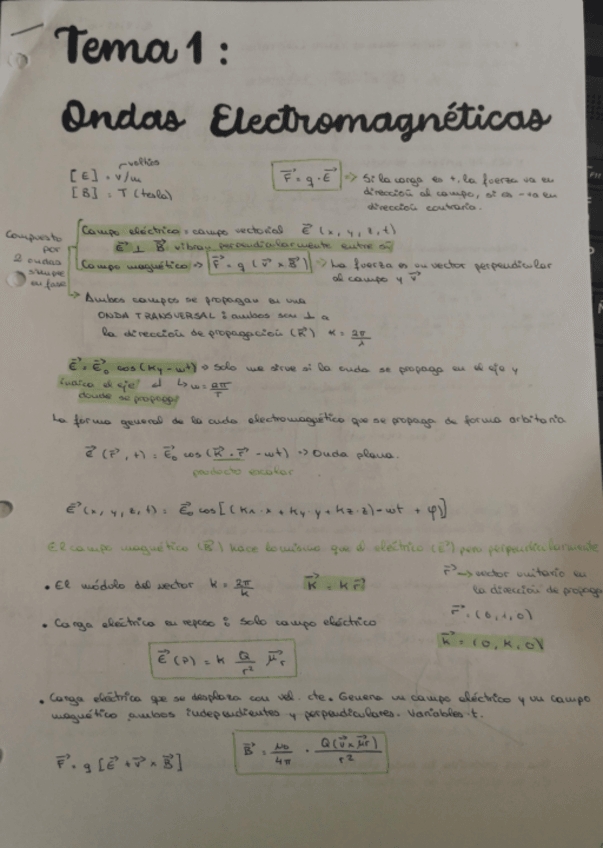 Tema 1 :
Ondas Electromagnéticas
voltios
[E] = V/m
[B] = T (tesla)
F⃗ = q · E⃗ => Si la carga es +, la fuerza va en
dirección al campo, si es - va en
dirección contraria.
Compuesto
por
2 ondas
siempre
en fase
Campo eléctrico = campo vectorial E⃗ (x, y, z, t)
E⃗ ⊥ B⃗ vibran perpendicularmente entre sí
Campo magnético => F⃗ = q (v⃗ x B⃗) => La fuerza es un vector perpendicular
al campo y v⃗
Ambos campos se propagan en una
ONDA TRANSVERSAL : ambos son ⊥ a
la dirección de propagación (K⃗) K = 2π/λ
E⃗ = E⃗₀ cos (ky - wt) => Solo me sirve si la onda se propaga en el eje y
indica el eje
donde se propaga
w = 2π/T
La forma general de la onda electromagnética que se propaga de forma arbitraria
E⃗ (r⃗, t) = E⃗₀ cos (K⃗ · r⃗ - wt) => Onda plana.
producto escalar
E⃗ (x, y, z, t) = E⃗₀ cos [(Kx · x + Ky · y + Kz · z) - wt + φ)]
El campo magnético (B⃗) hace lo mismo que el eléctrico (E⃗) pero perpendicularmente
• El módulo del vector k = 2π/k
K⃗ = K r⃗
r⃗ -> vector unitario en
la dirección de propaga
r⃗ = (0, 1, 0)
K⃗ = (0, K, 0)
• Carga eléctrica en reposo : Solo campo eléctrico
E⃗ (P) = K Q/r² μ⃗r
• Carga eléctrica que se desplaza con vel. cte. Genera un campo eléctrico y un campo
magnético ambos independientes y perpendiculares. Variables t.
F⃗ = q [E⃗ + v⃗ x B⃗]
B⃗ = μ₀/4π · Q (v⃗ x μ⃗r)/r²